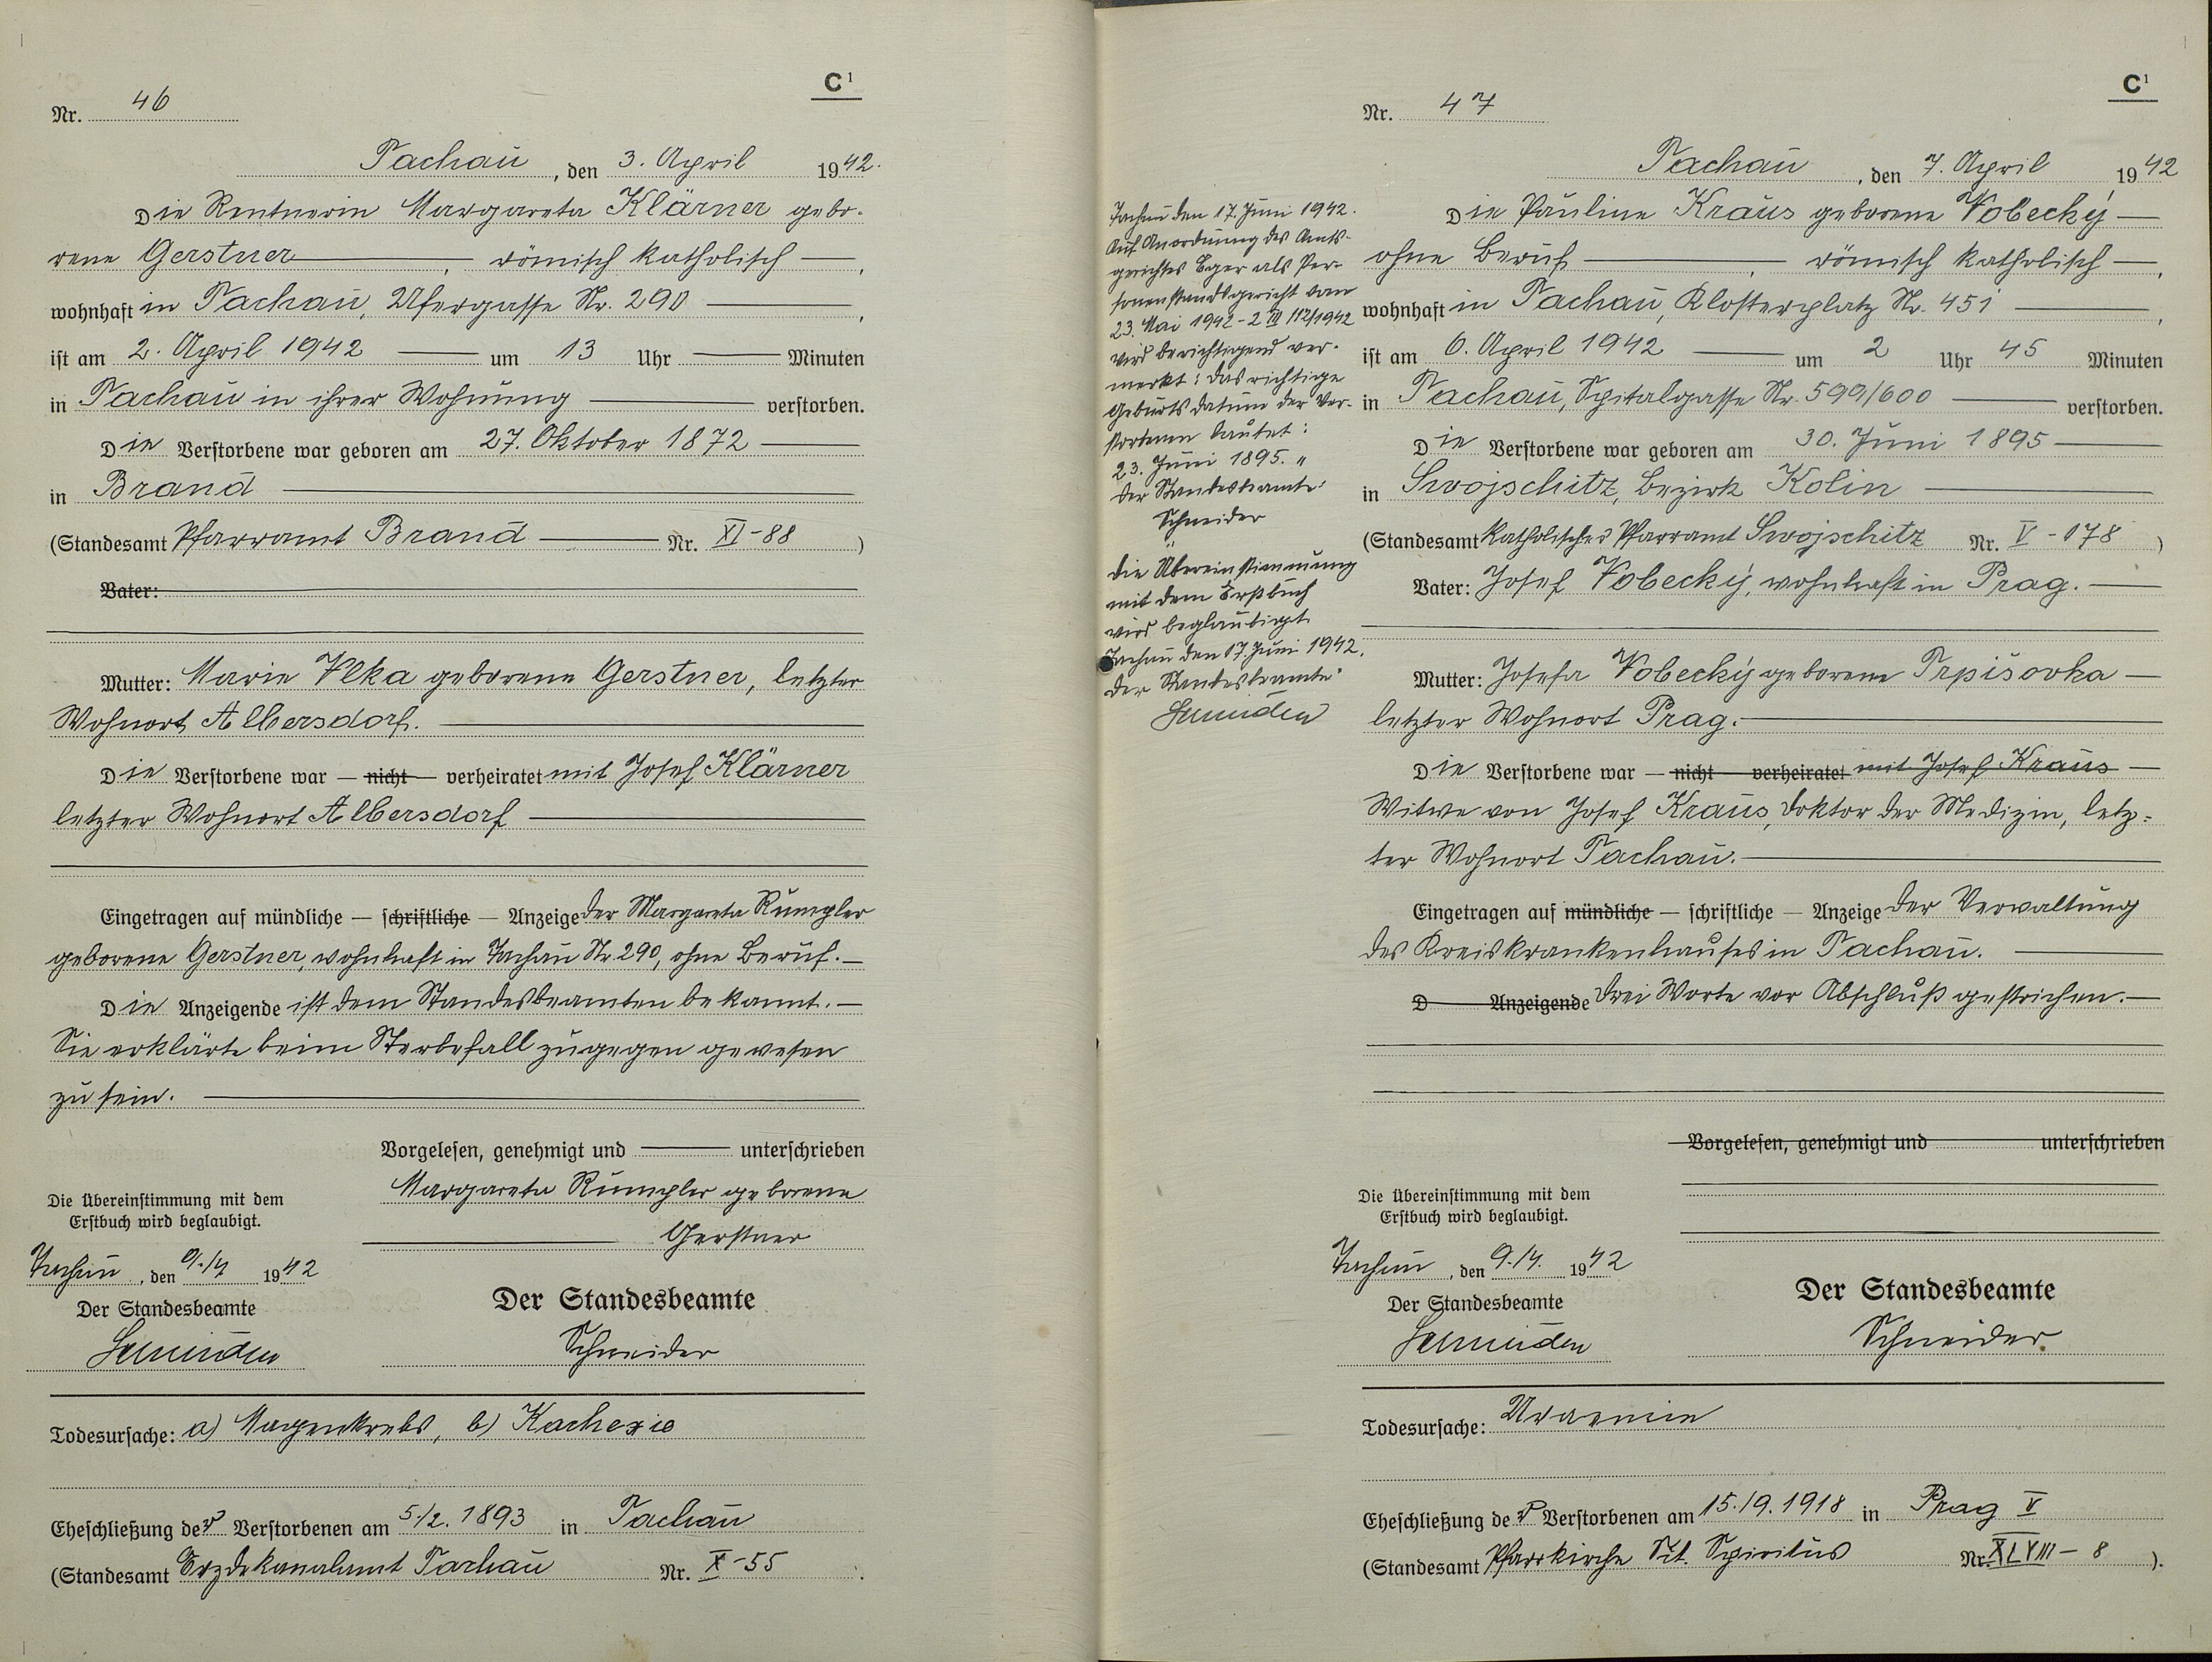 C¹
Nr. 46
Tachau, den 3. April 1942.
Die Rentnerin Margareta Klärner gebo-
rene Gerstner, römisch katholisch,
wohnhaft in Tachau, Ufergasse Nr. 290,
ist am 2. April 1942 um 13 Uhr Minuten
in Tachau in ihrer Wohnung verstorben.
Die Verstorbene war geboren am 27. Oktober 1872
in Brand
(Standesamt Pfarramt Brand Nr. XI-88)
Vater:
Mutter: Marie Vlka geborene Gerstner, letzter
Wohnort Albersdorf.
Die Verstorbene war — nicht — verheiratet mit Josef Klärner
letzter Wohnort Albersdorf
Eingetragen auf mündliche — schriftliche — Anzeige der Margareta Rumpler
geborene Gerstner, wohnhaft in Tachau Nr. 290, ohne Beruf.
Die Anzeigende ist dem Standesbeamten bekannt.
Sie erklärte beim Sterbefall zugegen gewesen
zu sein.
Vorgelesen, genehmigt und unterschrieben
Margareta Rumpler geborene
Gerstner
Die Übereinstimmung mit dem
Erstbuch wird beglaubigt.
Tachau, den 9./4 1942
Der Standesbeamte
Schneider
Der Standesbeamte
Schneider
Todesursache: a) Magenkrebs, b) Kachexie
Eheschließung der Verstorbenen am 5./2. 1893 in Tachau
(Standesamt Erzdekanalamt Tachau Nr. X-55).
C¹
Nr. 47
Tachau, den 7. April 1942
Die Pauline Kraus geborene Vobecký
ohne Beruf, römisch katholisch,
wohnhaft in Tachau, Klosterplatz Nr. 451,
ist am 6. April 1942 um 2 Uhr 45 Minuten
in Tachau, Spitalgasse Nr. 599/600 verstorben.
Die Verstorbene war geboren am 30. Juni 1895
in Swojschitz, Bezirk Kolin
(Standesamt Katholisches Pfarramt Swojschitz Nr. V-178)
Vater: Josef Vobecký, wohnhaft in Prag.
Mutter: Josefa Vobecký geborene Trpišovka
letzter Wohnort Prag.
Die Verstorbene war — nicht — verheiratet mit Josef Kraus
Witwe von Josef Kraus, Doktor der Medizin, letz-
ter Wohnort Tachau.
Eingetragen auf mündliche — schriftliche — Anzeige der Verwaltung
des Kreiskrankenhauses in Tachau.
D Anzeigende Drei Worte vor Abschluß gestrichen.
Vorgelesen, genehmigt und unterschrieben
Die Übereinstimmung mit dem
Erstbuch wird beglaubigt.
Tachau, den 9./4. 1942
Der Standesbeamte
Schneider
Der Standesbeamte
Schneider
Todesursache: Uraemie
Eheschließung der Verstorbenen am 15./9. 1918 in Prag V
(Standesamt Pfarrkirche Skt. Spiritus Nr. XLVIII-8).
Tachau den 17. Juni 1942.
Auf Anordnung des Amts-
gerichtes Eger als Per-
sonenstandsgericht vom
23. Mai 1942 - 2 III 112/1942
wird berichtigend ver-
merkt: das richtige
Geburtsdatum der Ver-
storbenen lautet:
23. Juni 1895. "
Der Standesbeamte:
Schneider
Die Übereinstimmung
mit dem Erstbuch
wird beglaubigt.
Tachau den 17. Juni 1942.
Der Standesbeamte:
Schneider